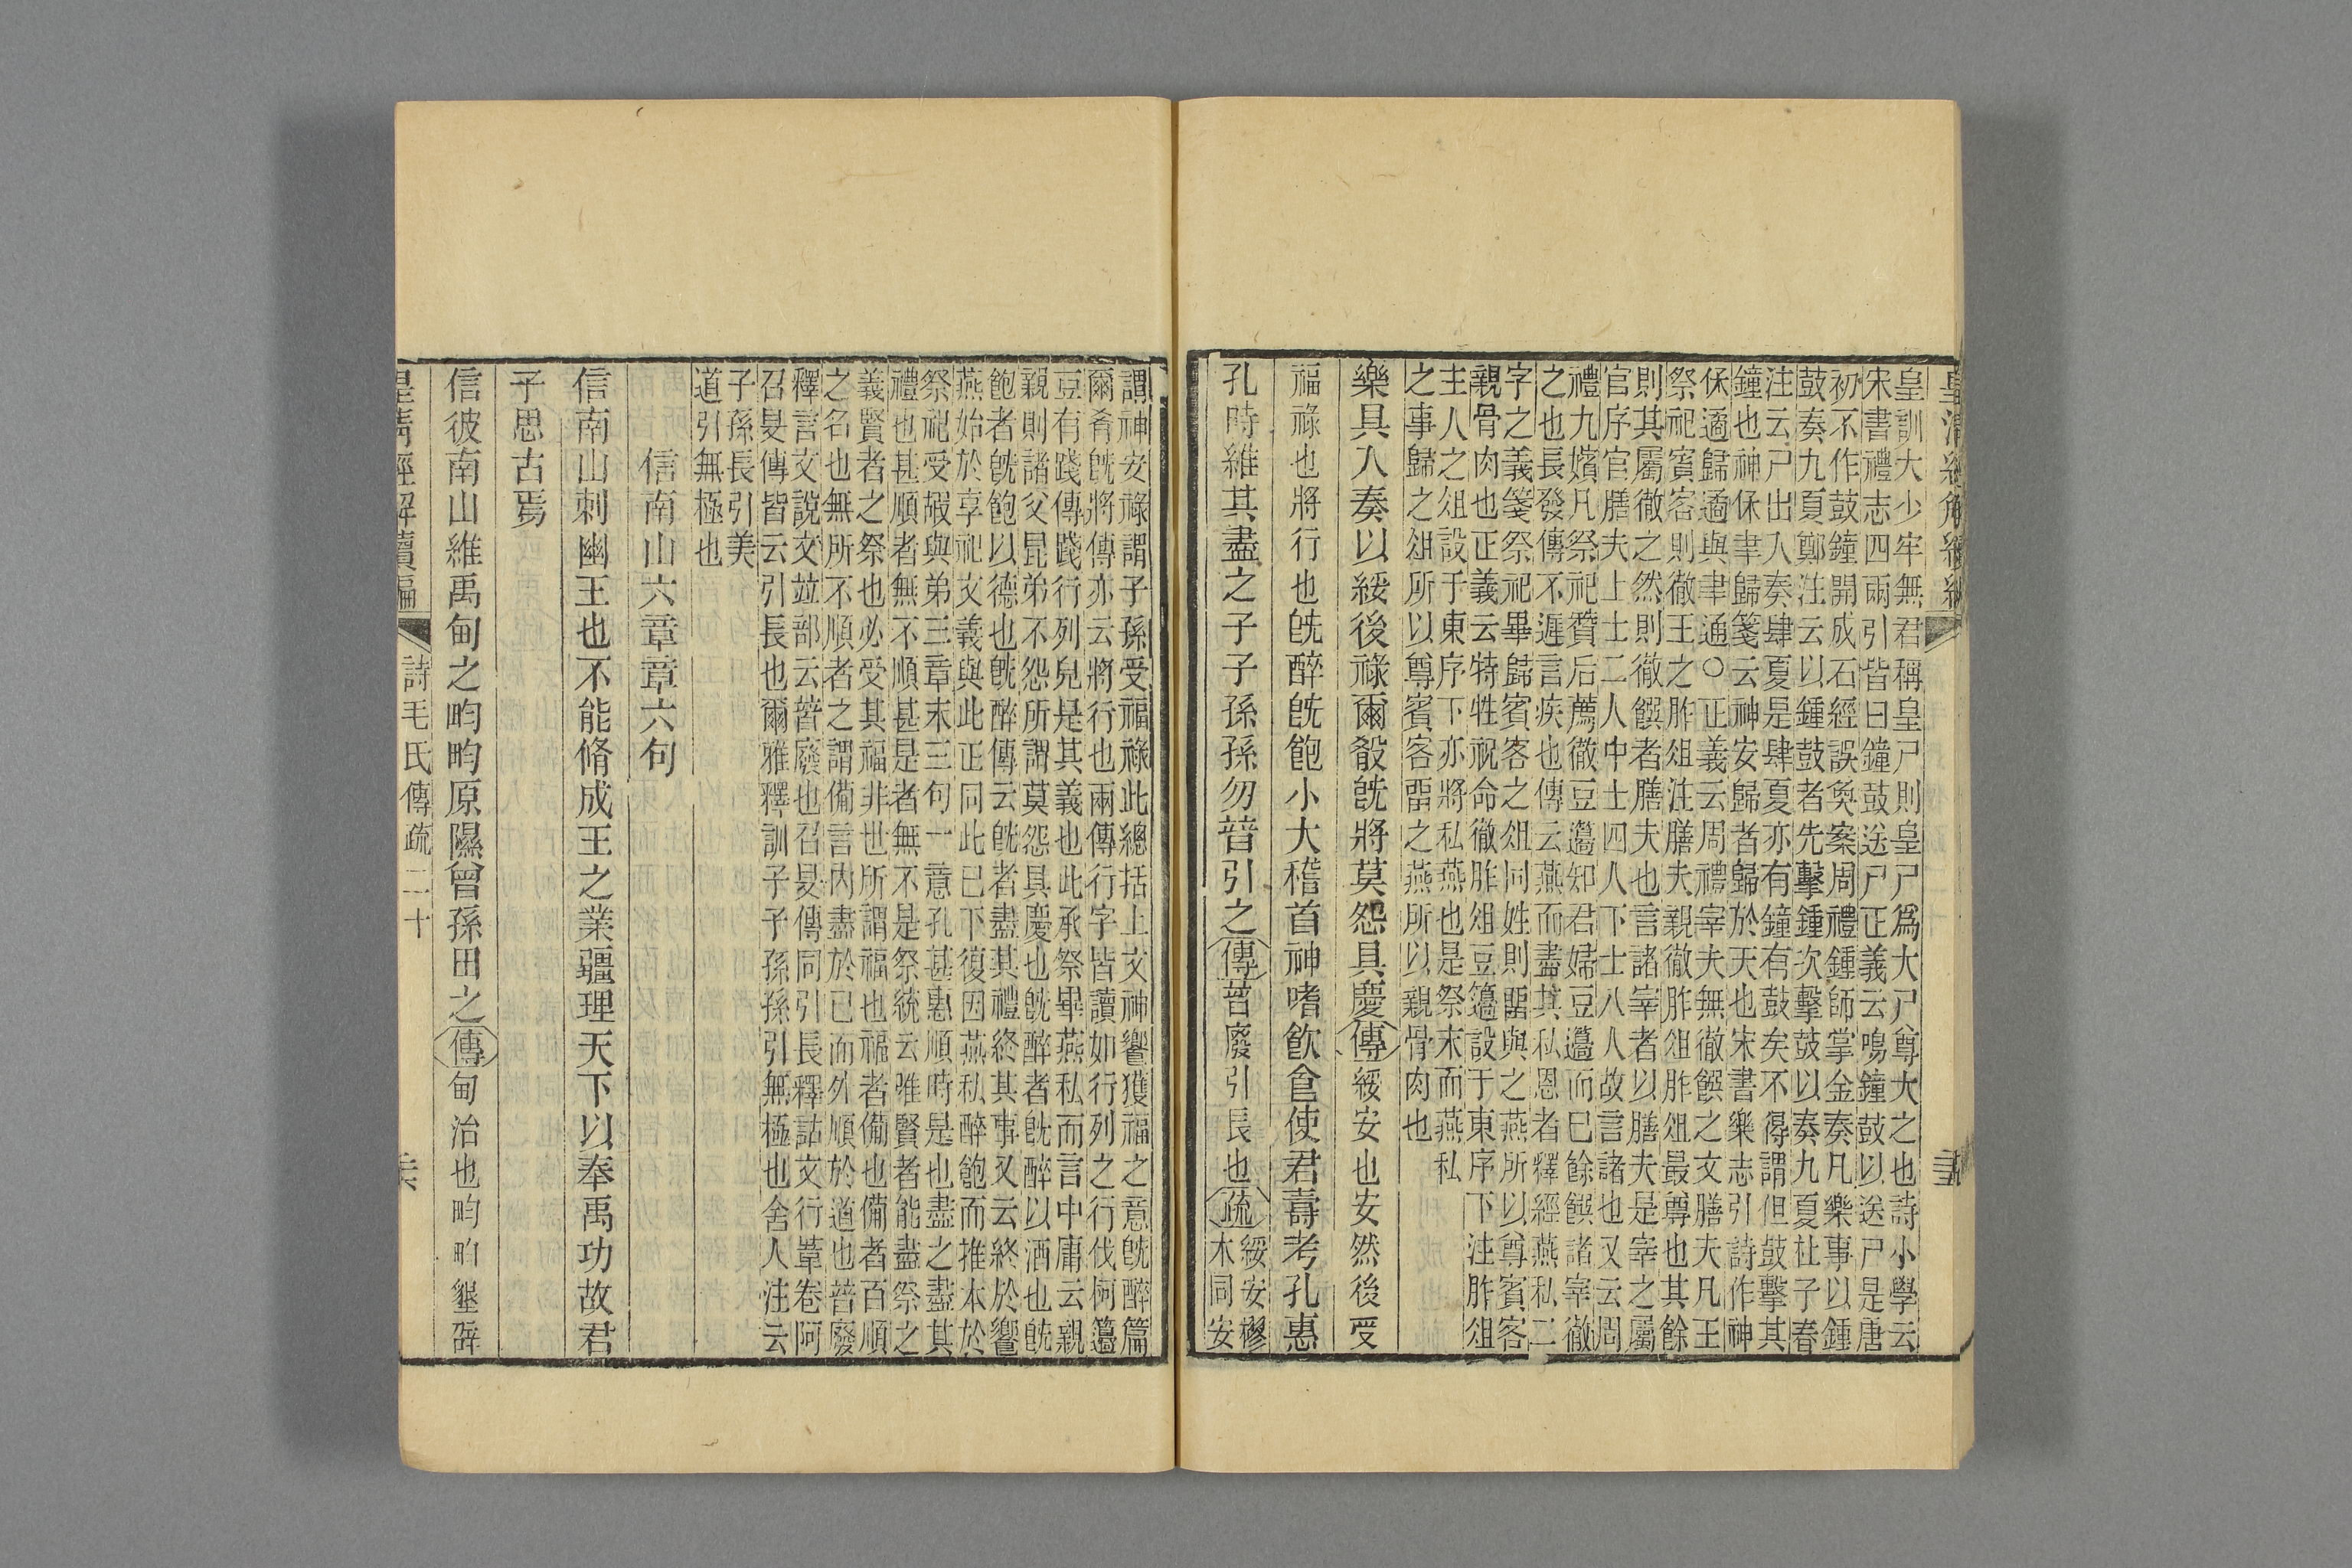 皇訓大少牢無君稱皇尸則皇尸爲大尸尊大之也詩小學云
宋書禮志四兩引皆曰鐘鼓送尸正義云鳴鐘鼓以送尸是唐
初不作鼓鐘開成石經誤矣案周禮鍾師掌金奏凡樂事以鍾
鼓奏九夏鄭注云以鍾鼓者先擊鍾次擊鼓以奏九夏杜子春
注云尸出入奏肆夏是肆夏亦有鐘有鼓矣不得謂但鼓擊其
鐘也神保聿歸箋云神安歸者歸於天也宋書樂志引詩作神
保遹歸遹與聿通○正義云周禮宰夫無徹饌之文膳夫凡王
祭祀賓客則徹王之胙俎注膳夫親徹胙俎胙俎最尊也其餘
則其屬徹之然則徹饌者膳夫也言諸宰者以膳夫是宰之屬
官序官膳夫上士二人中士四人下士八人故言諸也又云周
禮九嬪凡祭祀贊后薦徹豆籩知君婦豆籩而已餘饌諸宰徹
之也長發傳不遲言疾也傳云燕而盡其私恩者釋經燕私二
字之義箋祭祀畢歸賓客之俎同姓則留與之燕所以尊賓客
親骨肉也正義云特牲祝命徹胙俎豆籩設于東序下注胙俎
主人之俎設于東序下亦將私燕也是祭末而燕私
之事歸之俎所以尊賓客留之燕所以親骨肉也
樂具入奏以綏後祿爾殽旣將莫怨具慶傳綏安也安然後受
福祿也將行也旣醉旣飽小大稽首神嗜飮食使君壽考孔惠
孔時維其盡之子子孫孫勿替引之傳替廢引長也疏綏安樛
木同安
謂神安祿謂子孫受福祿此總括上文神饗獲福之意旣醉篇
爾肴旣將傳亦云將行也兩傳行字皆讀如行列之行伐柯籩
豆有踐傳踐行列皃是其義也此承祭畢燕私而言中庸云親
親則諸父昆弟不怨所謂莫怨具慶也旣醉者旣醉以酒也旣
飽者旣飽以德也旣醉傳云旣者盡其禮終其事又云終於饗
燕始於享祀文義與此正同此已下復因燕私醉飽而推本於
祭祀受嘏與弟三章末三句一意孔甚惠順時是也盡之盡其
禮也甚順者無不順甚是者無不是祭統云唯賢者能盡祭之
義賢者之祭也必受其福非世所謂福也福者備也備者百順
之名也無所不順者之謂備言內盡於己而外順於道也替廢
釋言文說文竝部云暜廢也召旻傳同引長釋詁文行葦卷阿
召旻傳皆云引長也爾雅釋訓子子孫孫引無極也舍人注云
子孫長引美
道引無極也
信南山六章章六句
信南山刺幽王也不能脩成王之業疆理天下以奉禹功故君
子思古焉
信彼南山維禹甸之畇畇原隰曾孫田之傳甸治也畇畇墾辟
皇淸經解續編 詩毛氏傳疏二十